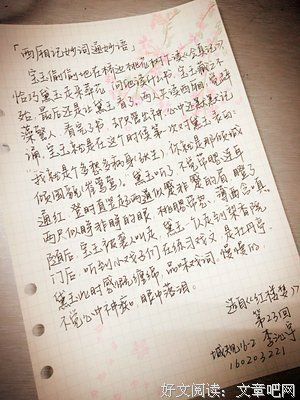 「西厢记妙词通妙语」
宝玉偷偷地在桥边桃花树下读《会真记》
恰巧黛玉走来葬花，问他读什么书，宝玉藏之不
给，最后还是让黛玉看了，两人共读西厢，觉得
藻警人，看完了书，却只管出神，心中还默默记
诵，宝玉就是在这个时候第一次对黛玉表白：
“我就是个多愁多病身（张生），你就是那倾城
倾国貌（莺莺）。黛玉听了不觉带腮连耳
通红，登时直竖起两道似蹙非蹙的眉，瞪了
两只似睁非睁的眼，桃腮带怒，薄面含嗔，
随后，宝玉被袭人叫走，黛玉一个走到梨香院
门口，听到小戏子们在练习戏文，是牡丹亭，
黛玉此时感慨缠绵，品味戏词，慢慢的，
不觉心中神痴，眼中落泪。
选自《红楼梦》
第23回
城规16-2 李沁宇
160203221
好文阅读：文章吧网